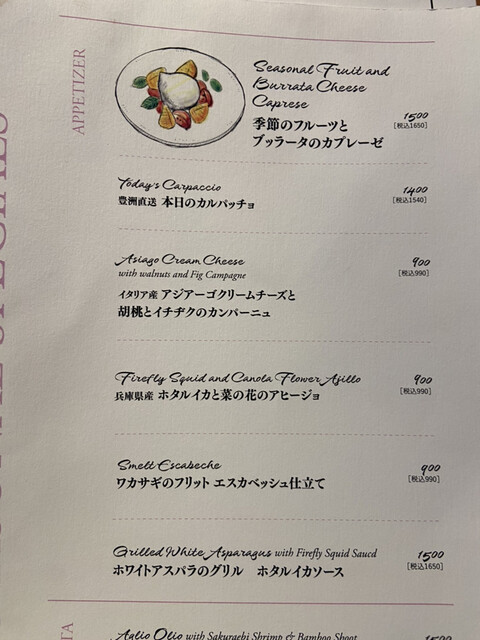 APPETIZER
Seasonal Fruit and
Burrata Cheese
Caprese
1500
季節のフルーツと
[税込1650]
ブッラータのカプレーゼ
Today's Carpaccio
1400
豊洲直送 本日のカルパッチョ
[税込1540]
Asiago Cream Cheese
900
with walnuts and Fig Campagne
[税込990]
イタリア産 アジアーゴクリームチーズと
胡桃とイチヂクのカンパーニュ
Firefly Squid and Canola Flower Ajillo
900
兵庫県産 ホタルイカと菜の花のアヒージョ
[税込990]
Smelt Escabeche
900
ワカサギのフリット エスカベッシュ仕立て
[税込990]
Grilled White Asparagus with Firefly Squid Saucd
1500
ホワイトアスパラのグリル ホタルイカソース
[税込1650]
Aglio Olio with Sakuraebi Shrimp & Bamboo Shoot